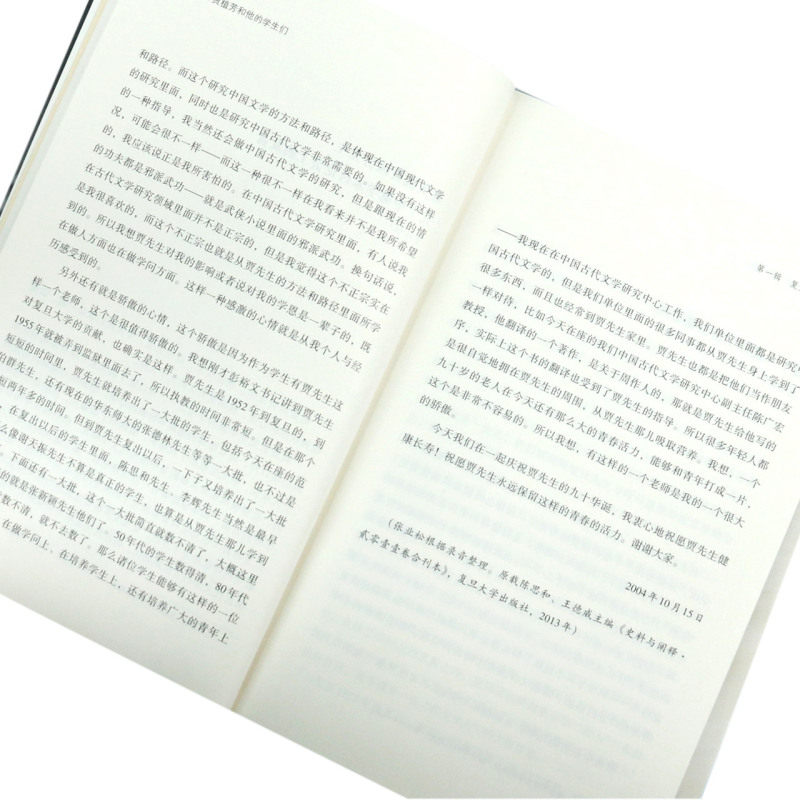 贾植芳和他的学生们
和路径。而这个研究中国文学的方法和路径，是体现在中国现代文学
的研究里面，同时也是研究中国古代文学非常需要的。如果没有这样
的一种指导，我当然还会做中国古代文学的研究，但是跟现在的情
况，可能会很不一样——而这一种很不一样在我看来并不是我所希望
的，我应该说正是我所害怕的。在中国古代文学研究里面，有人说我
的功夫都是邪派武功——就是武侠小说里面的邪派武功。换句话说，
在古代文学研究领域里面并不是正宗的，但是我觉得这个不正宗实在
是我很喜欢的，而这个不正宗也就是从贾先生的方法和路径里面所学
到的。所以我想贾先生对我的影响或者说对我的学恩是一辈子的，既
在做人方面也在做学问方面。这样一种感激的心情就是从我个人与经
历感受到的。
另外还有就是骄傲的心情，这个骄傲是因为作为学生有贾先生这
样一个老师，这个是很值得骄傲的。我想刚才彭裕文书记讲到贾先生
对复旦大学的贡献，也确实是这样。贾先生是1952年到复旦的，到
1955年就被弄到监狱里面去了，所以执教的时间非常短。但是在那个
短短的时间里，贾先生就培养出了一大批的学生，包括今天在座的范
伯群先生，还有现在的华东师大的张德林先生等等一大批，也不过是
短两年多的时间。但到贾先生复出以后，一下子又培养出了一大批
，在复出以后的学生里面，陈思和先生、李辉先生当然是最早
么像谢天振先生不算是真正的学生，也算是从贾先生那儿学到
。下面还有一大批，这个一大批简直就数不清了，大概这里
的就是张新颖先生他们了。50年代的学生数得清，80年代
数不清，就不去数了。那么诸位学生能够有这样的一位
在做学问上、在培养学生上，还有培养广大的青年上
第一辑 复
——我现在在中国古代文学研究中心工作，我们单位里面都是研究中
国古代文学的，但是我们单位里面的很多同事都从贾先生身上学到了
很多东西，而且也经常到贾先生家里。贾先生也都是把他们当作朋友
一样对待，比如今天在座的我们中国古代文学研究中心副主任陈广宏
教授，他翻译的一个著作，是关于周作人的，那就是贾先生给他写的
序，实际上这个书的翻译也受到了贾先生的指导。所以很多年轻人都
是很自觉地拥在贾先生的周围，从贾先生那儿吸取营养。我想，一个
九十岁的老人在今天还有那么大的青春活力，能够和青年打成一片，
这个是非常不容易的。所以我想，有这样的一个老师是我的一个很大
的骄傲。
今天我们在一起庆祝贾先生的九十华诞，我衷心地祝愿贾先生健
康长寿！祝愿贾先生永远保留这样的青春的活力。谢谢大家。
2004年10月15日
（张业松根据录音整理。原载陈思和、王德威主编《史料与阐释·
贰零壹壹卷合刊本》，复旦大学出版社，2013年）